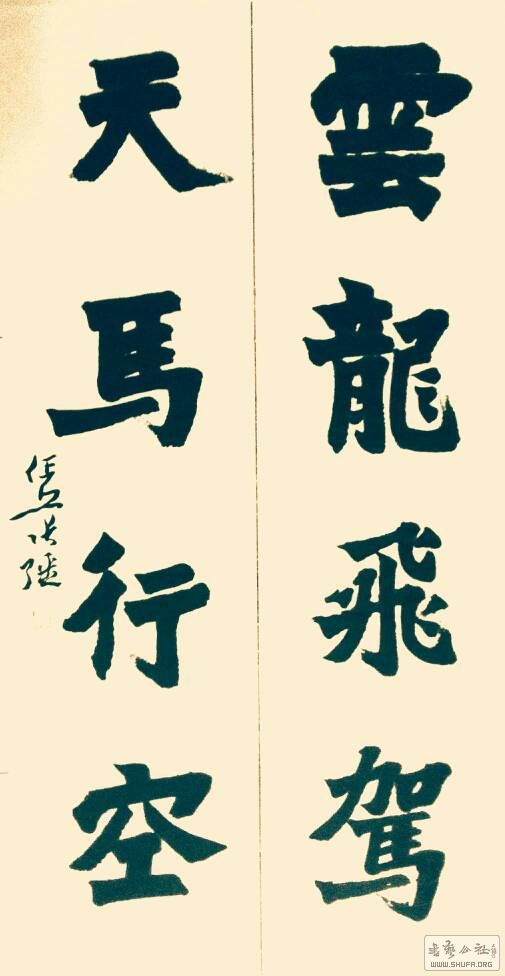 雲龍飛駕
天馬行空
書藝公社
WWW.SHUFA.ORG